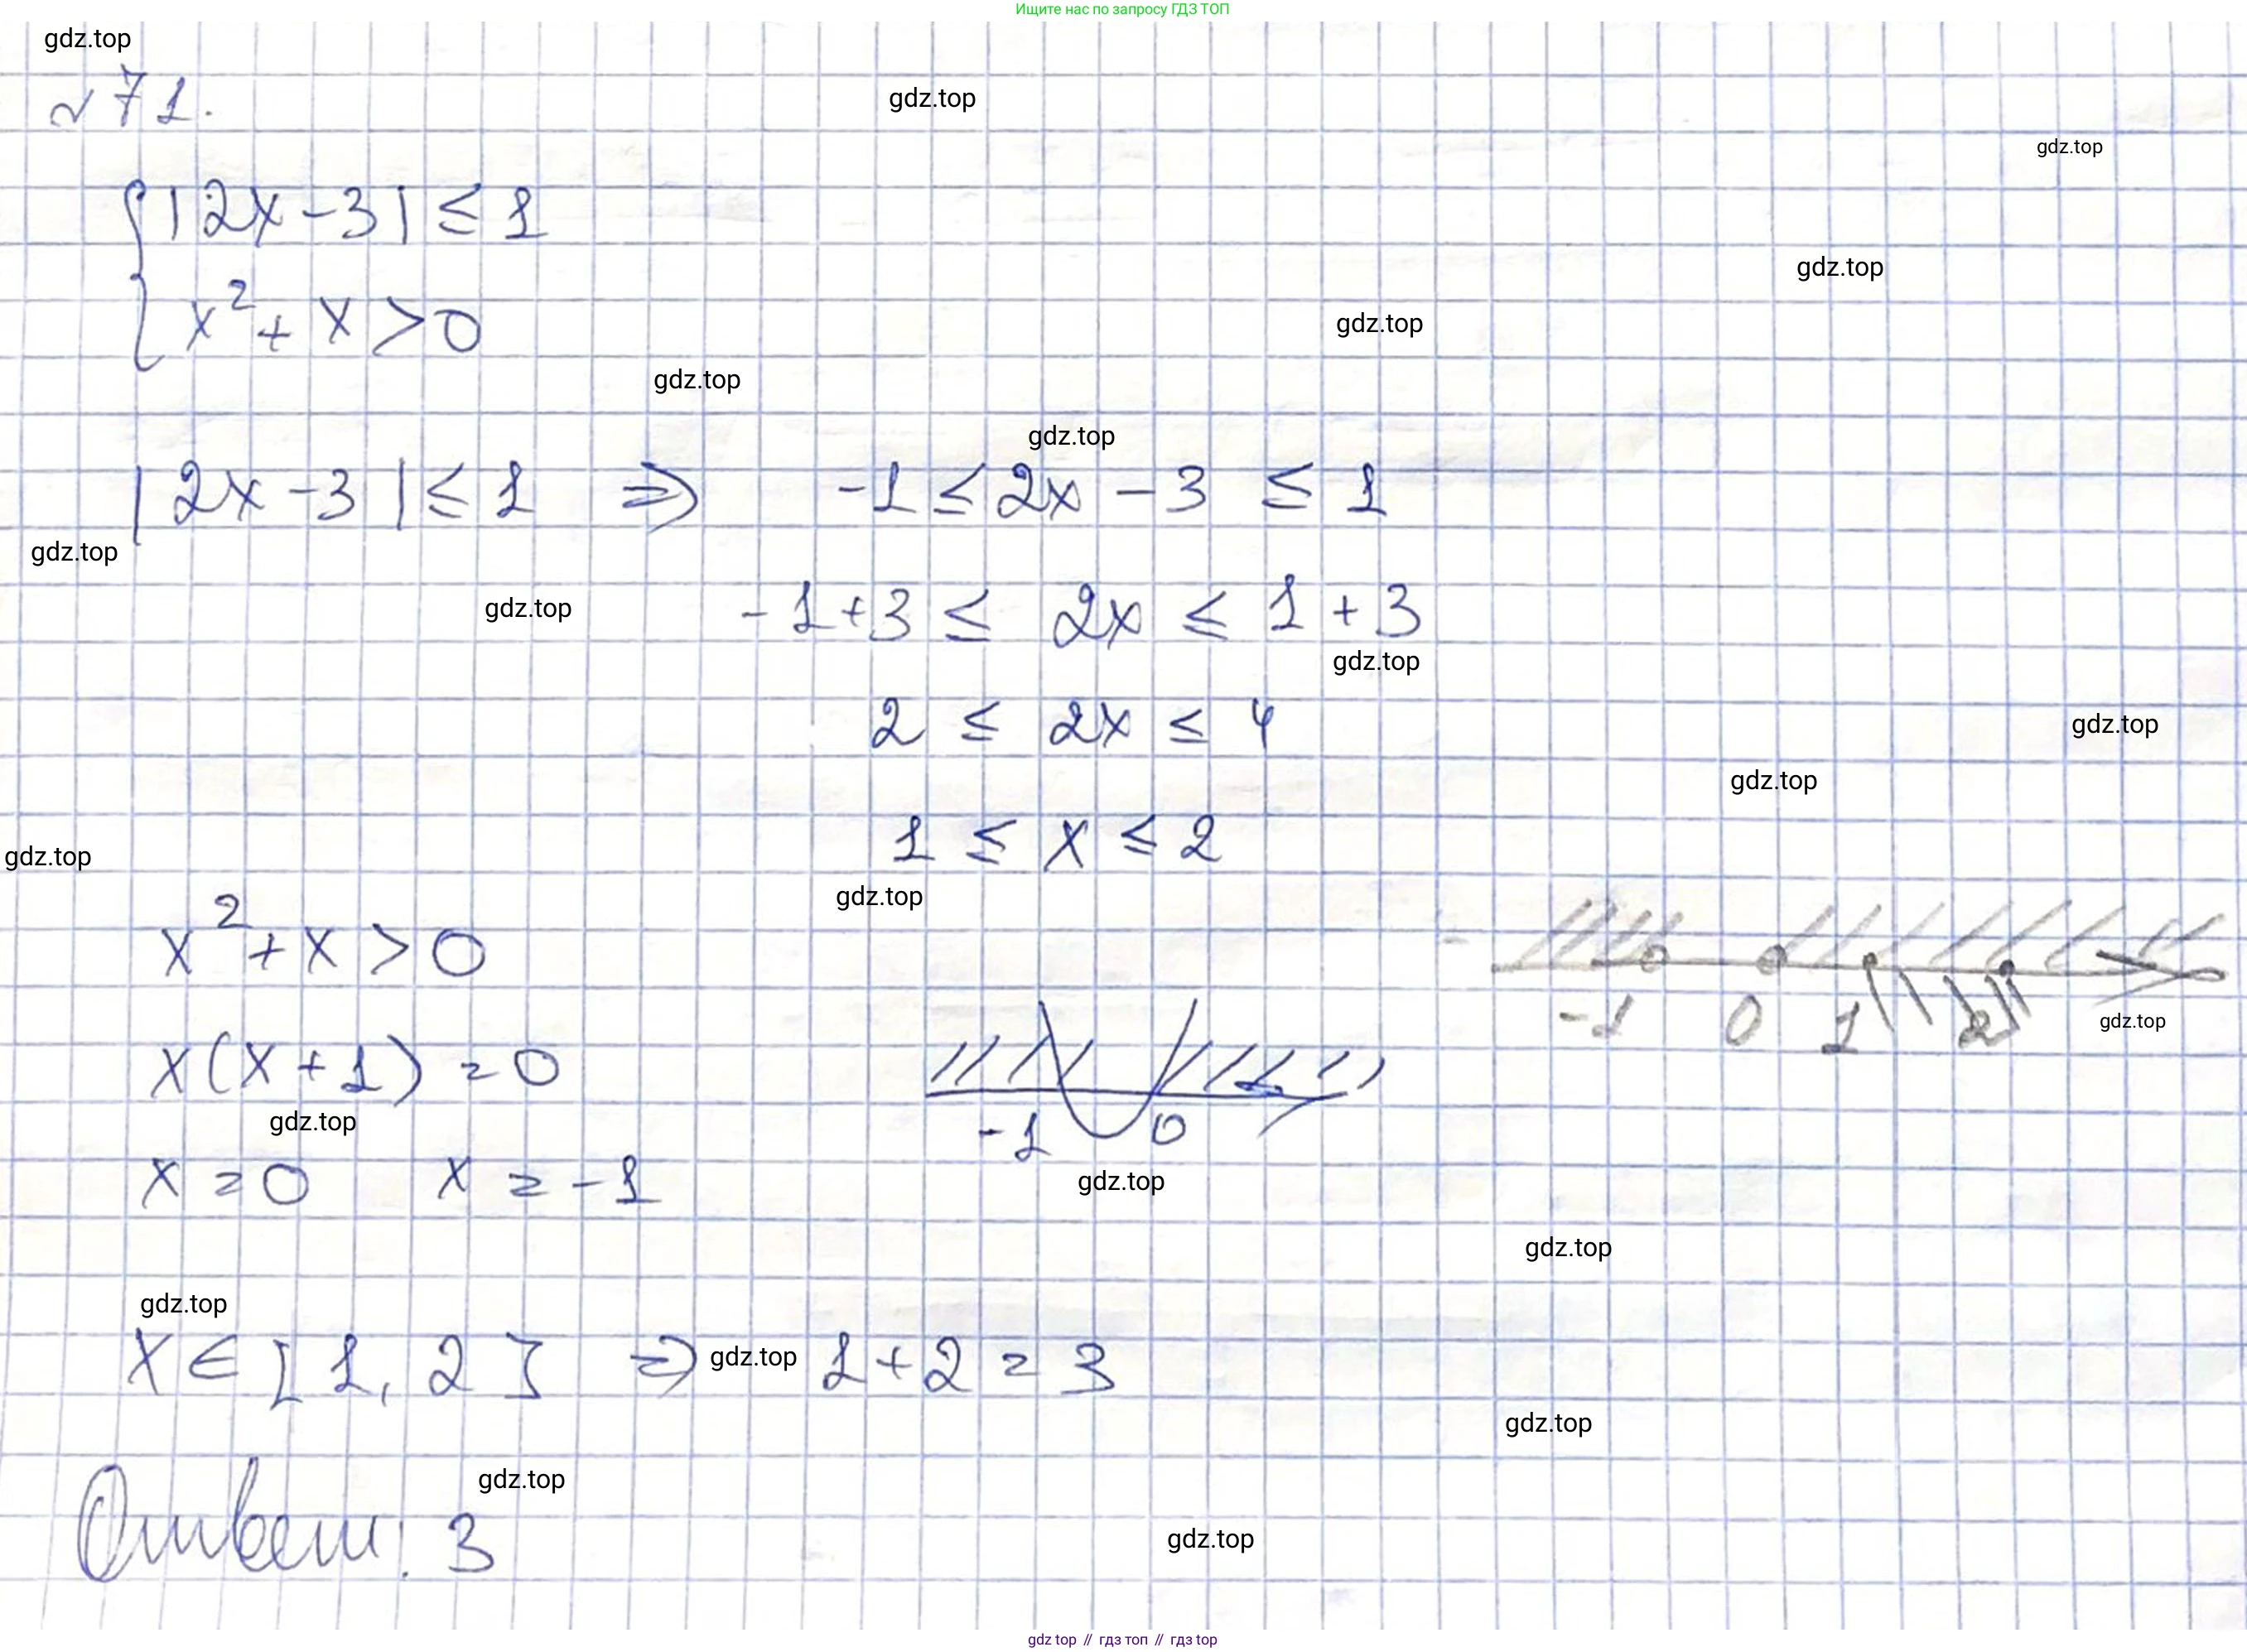 Ищите нас по запросу ГДЗ ТОП
gdz.top
№71.
gdz.top
gdz.top
|2x-3| ≤ 1
gdz.top
x²+x>0
gdz.top
gdz.top
gdz.top
|2x-3| ≤ 1 ⇒ -1 ≤ 2x-3 ≤ 1
gdz.top
gdz.top
-1+3 ≤ 2x ≤ 1+3
gdz.top
2 ≤ 2x ≤ 4
gdz.top
gdz.top
1 ≤ x ≤ 2
gdz.top
gdz.top
x²+x>0
-1 0 1 2
gdz.top
x(x+1)=0
gdz.top
-1 0
x=0 x=-1
gdz.top
gdz.top
gdz.top
x∈[1,2] ⇒ gdz.top 1+2=3
gdz.top
gdz.top
Ответ: 3
gdz.top
gdz top // гдз топ // гдз top